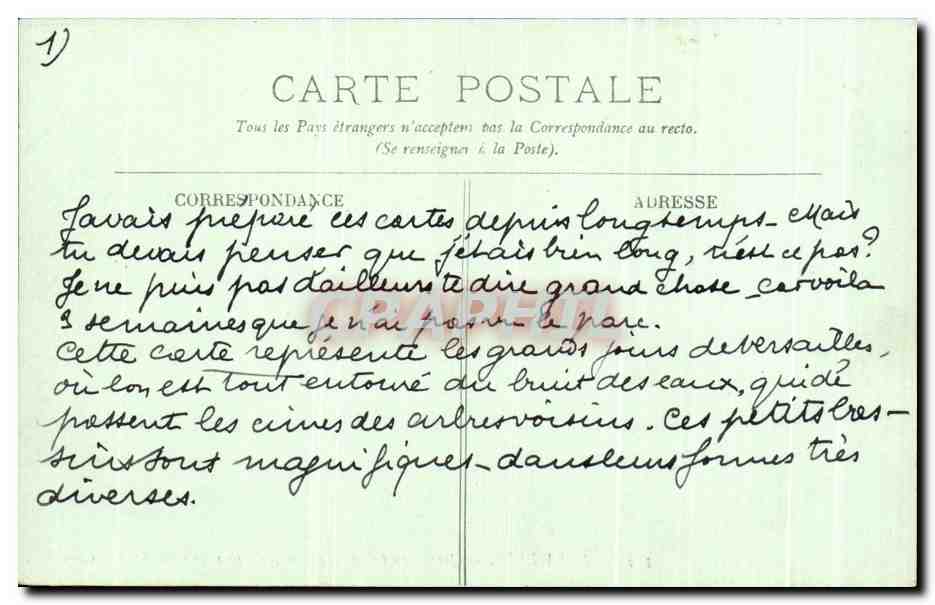 1)
CARTE POSTALE
Tous les Pays étrangers n'acceptent pas la Correspondance au recto.
(Se renseigner à la Poste).
CORRESPONDANCE
ADRESSE
J'avais préparé ces cartes depuis longtemps - Mais
tu devais penser que j'étais bien long, n'est ce pas?
Je ne puis pas d'ailleurs te dire grand chose - car voilà
3 semaines que je n'ai pas vu le parc.
Cette carte représente les grands jours de Versailles,
où l'on est tout entouré du bruit des eaux, qui dé
passent les cimes des arbres voisins. Ces petits bas-
sins sont magnifiques - dans leurs formes très
diverses.
CPARAMA